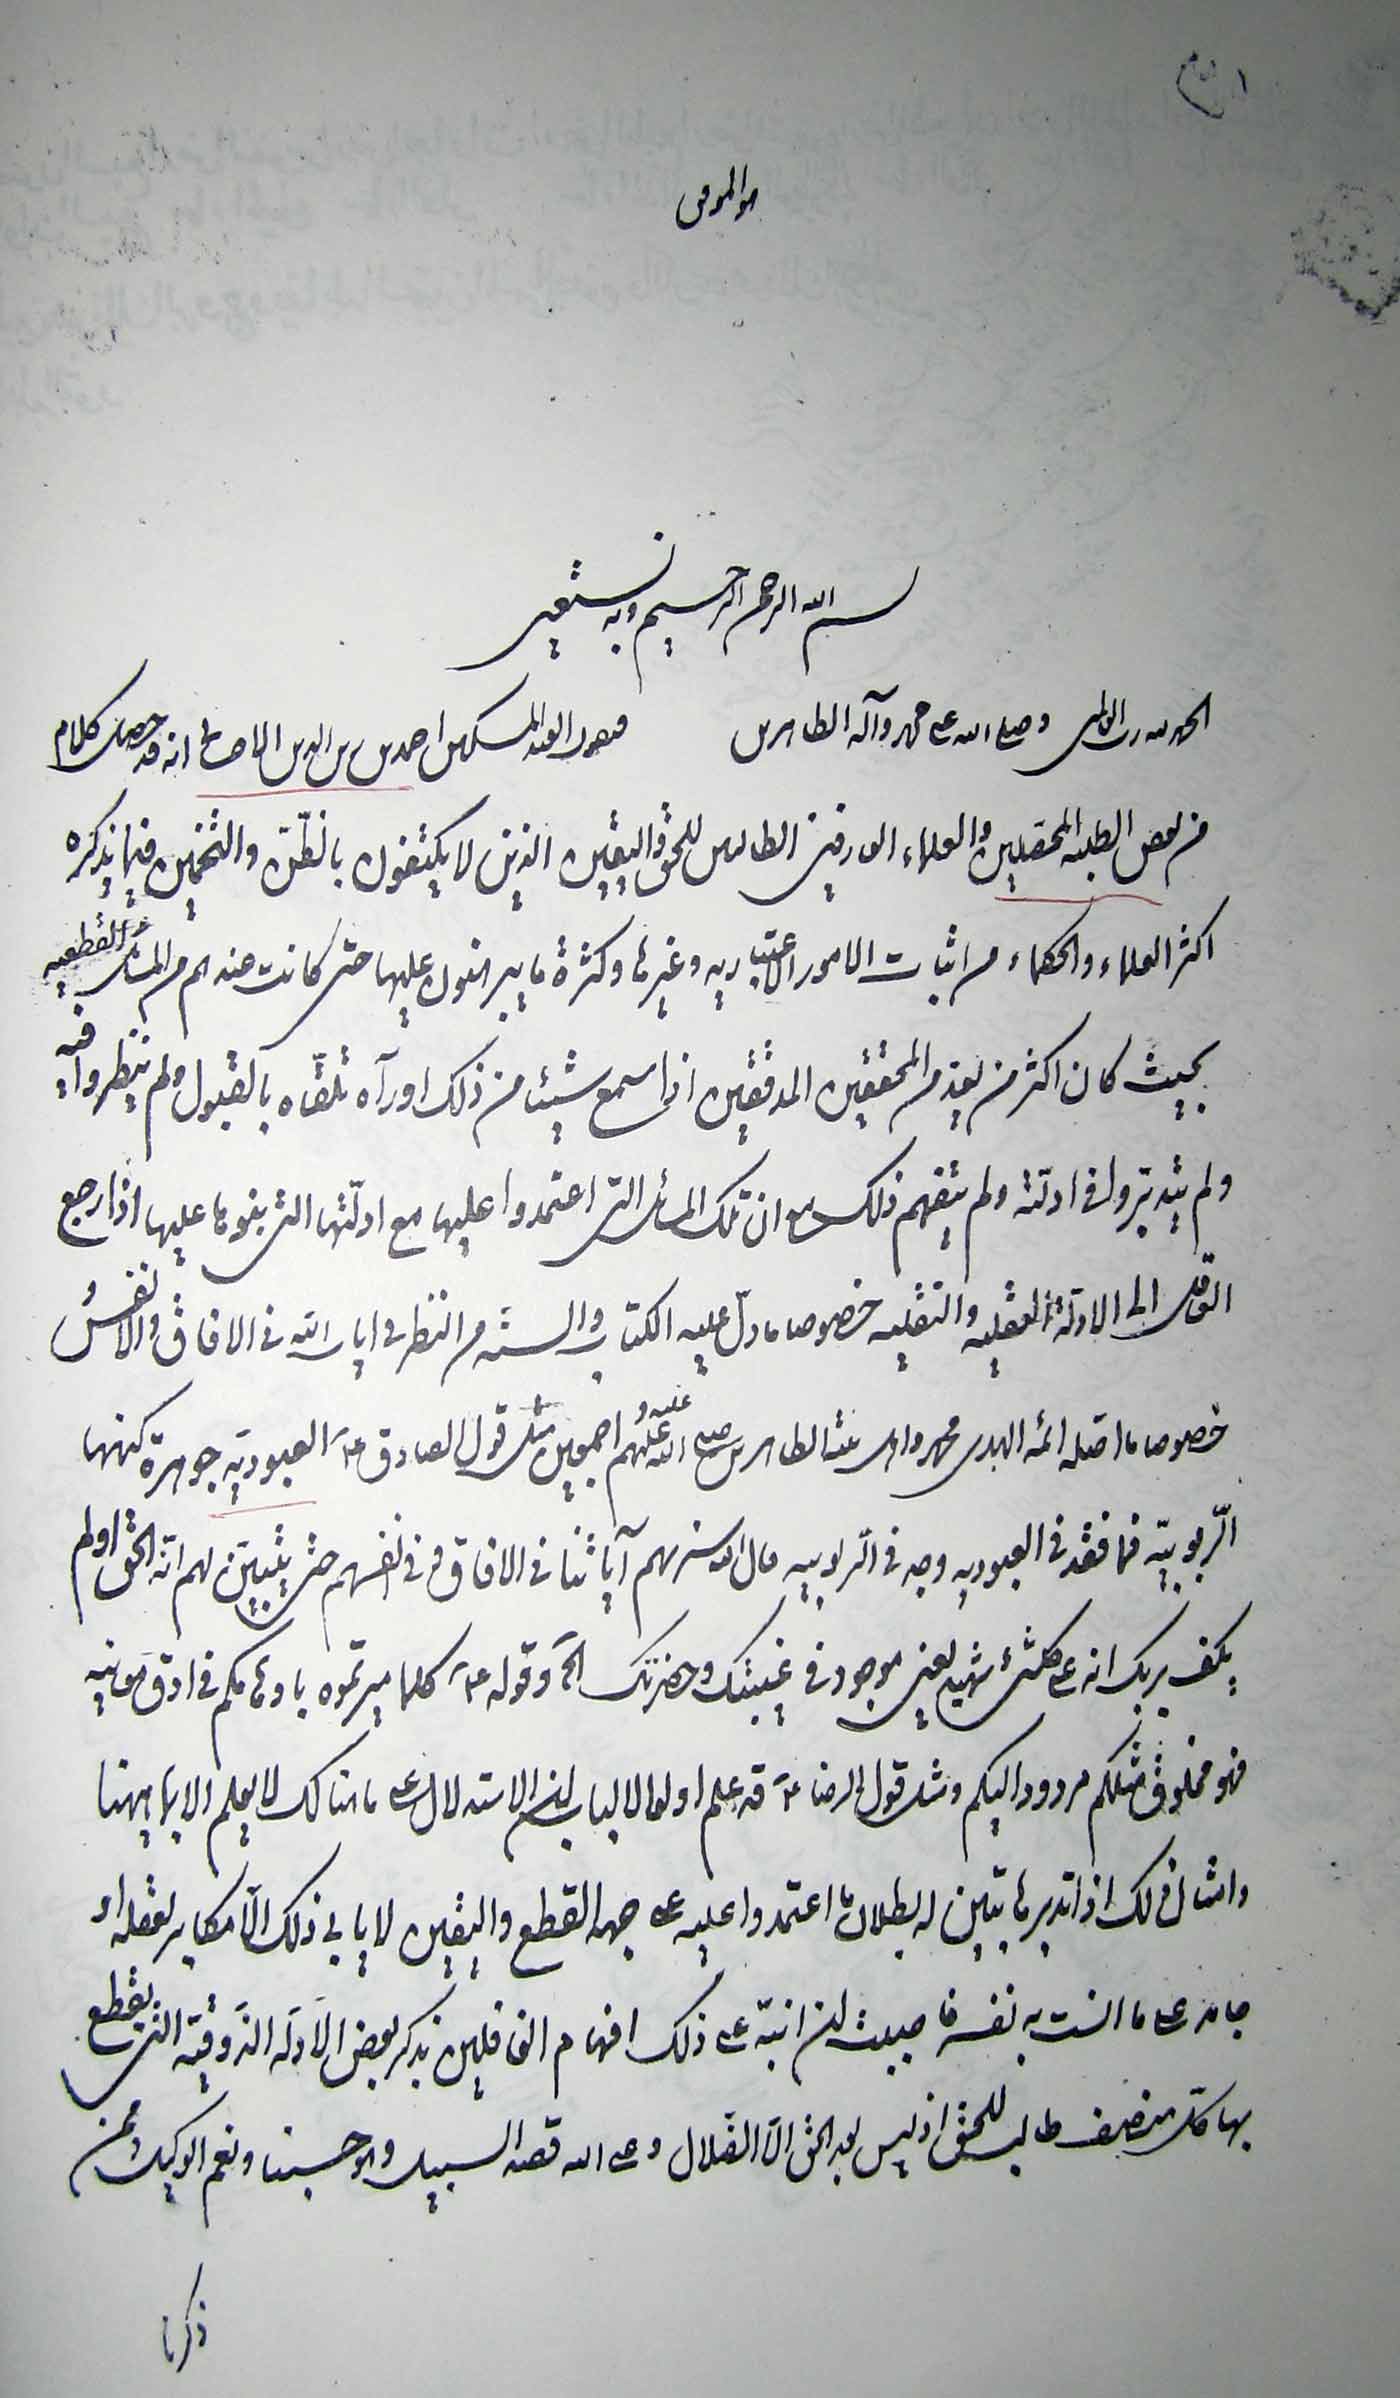 هو الموفق
بسم الله الرحمن الرحيم وبه نستعين
الحمد لله رب العالمين وصلى الله على محمد وآله الطاهرين فيقول العبد المسكين احمد بن زين الدين الاحسائي انه قد حصل كلام
من بعض الطلبه المحصلين والعلماء العارفين الطالبين للحق واليقين الذين لا يكتفون بالظن والتخمين فيما يذكره
اكثر العلماء والحكماء من اثبات الامور الاعتباريه وغيرها وكثرة ما يبرهنون عليها حتى كانت عندهم من المسائل القطعيه
بحيث كان اكثر من يعد من المحققين المدققين اذا سمع شيئا من ذلك او رآه تلقّاه بالقبول ولم ينظروا فيه
ولم يتدبّروا في ادلّته ولم يتفهم ذلك مع ان تلك المسائل التي اعتمدوا عليها مع ادلّتها التي بنوها عليها اذا رجع
العاقل الى الادلّة العقليه والنقليه خصوصا ما دلّ عليه الكتاب والسنّه من النظر في ايات الله في الافاق والانفس
خصوصا ما اصّله ائمه الهدى محمد واهل بيته الطاهرين صلى الله عليه وعليهم اجمعين مثل قول الصادق ع العبوديّه جوهرة كنهها
الرّبوبيّه فما فقد في العبوديه وجد في الرّبوبيه قال الله سنريهم آياتنا في الافاق وفي انفسهم حتى يتبيّن لهم انّه الحق اولم
يكف بربك انه على كلشئ شهيد يعني موجود في غيبتك وحضرتك الخ وقوله ع كلما ميزتموه باوهامكم في ادقّ معانيه
فهو مخلوق مثلكم مردود اليكم ومثل قول الرضا ع قد علم اولوا الالباب ان الاستدلال على ما هنالك لا يعلم الا بما هيهنا
وامثال ذلك اذا تدبرها تبين له بطلان ما اعتمدوا عليه على جهه القطع واليقين لا يابي ذلك الّا مكابر لعقله او
جامد على ما انست به نفسه فاحببت ان انبّه على ذلك افهام الغافلين بذكر بعض الادلّه الذّوقيّه التي يقطع
بها كل منصف طالب للحق اذ ليس بعد الحق الّا الضّلال وعلى الله قصد السبيل وهو حسبنا ونعم الوكيل فمن
ذكرنا